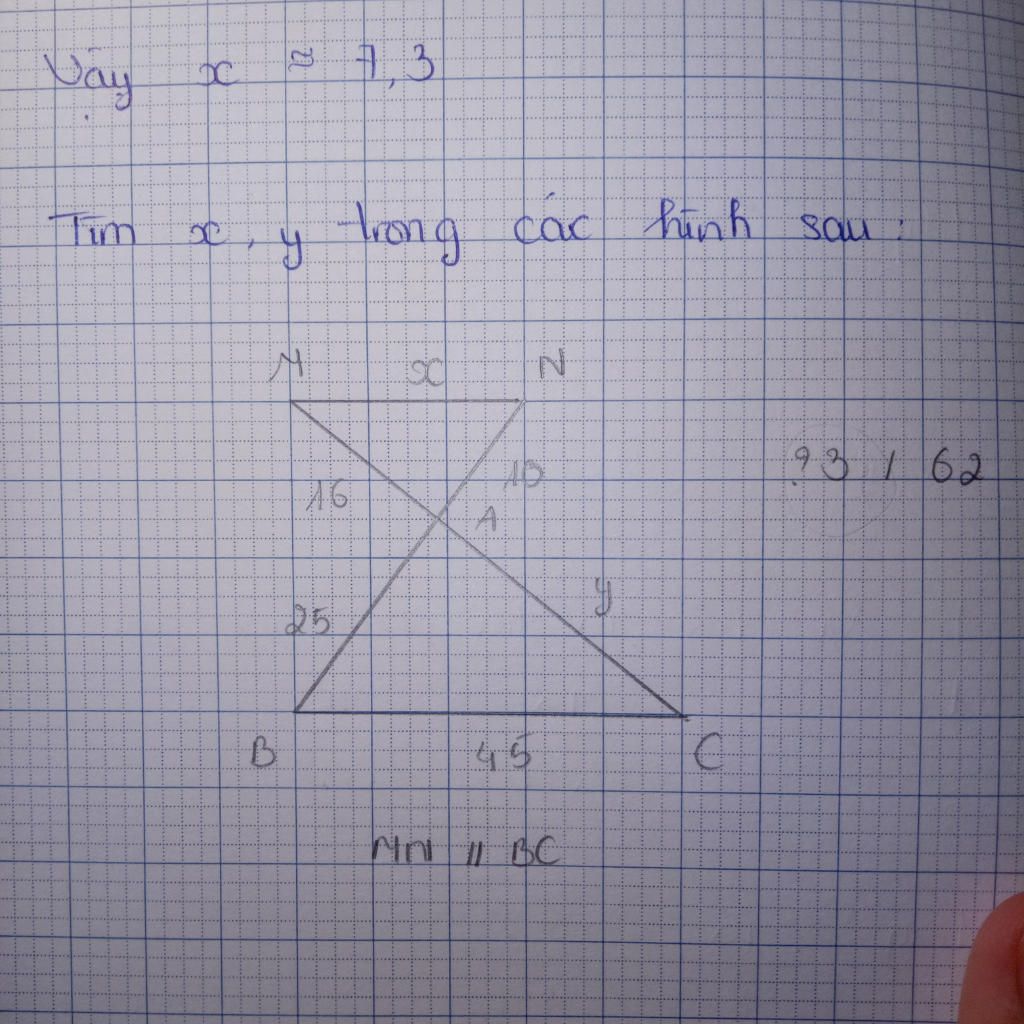 Vậy x ≈ 7,3
Tìm x, y trong các hình sau:
M x N
?3 / 62
16 10
A
y
25
B 45 C
MN // BC